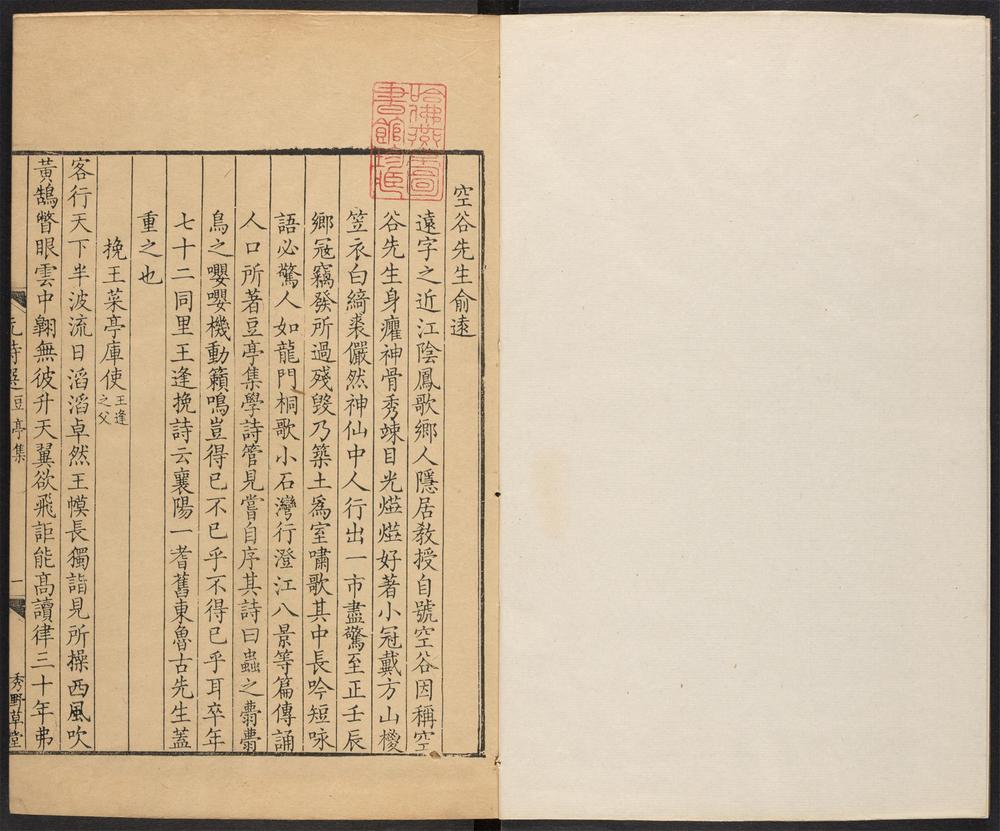 哈佛燕京圖書館珍藏
空谷先生俞遠
遠字之近江陰鳳歌鄉人隱居敎授自號空谷因稱空
谷先生身癯神骨秀竦目光㷀㷀好著小冠戴方山㯶
笠衣白綺裘儼然神仙中人行出一市盡驚至正壬辰
鄉冦竊發所過殘毀乃築土爲室嘯歌其中長吟短咏
語必驚人如龍門桐歌小石灣行澄江八景等篇傳誦
人口所著豆亭集學詩管見嘗自序其詩曰蟲之𧕿𧕿
鳥之嚶嚶機動籟鳴豈得已不已乎不得已乎耳卒年
七十二同里王逢挽詩云襄陽一耆舊東魯古先生蓋
重之也
挽王菜亭庫使王逢之父
客行天下半波流日滔滔卓然王幙長獨詣見所操西風吹
黃鵠瞥眼雲中翺無彼升天翼欲飛詎能髙讀律三十年弗
元詩選 豆亭集 一 秀野草堂